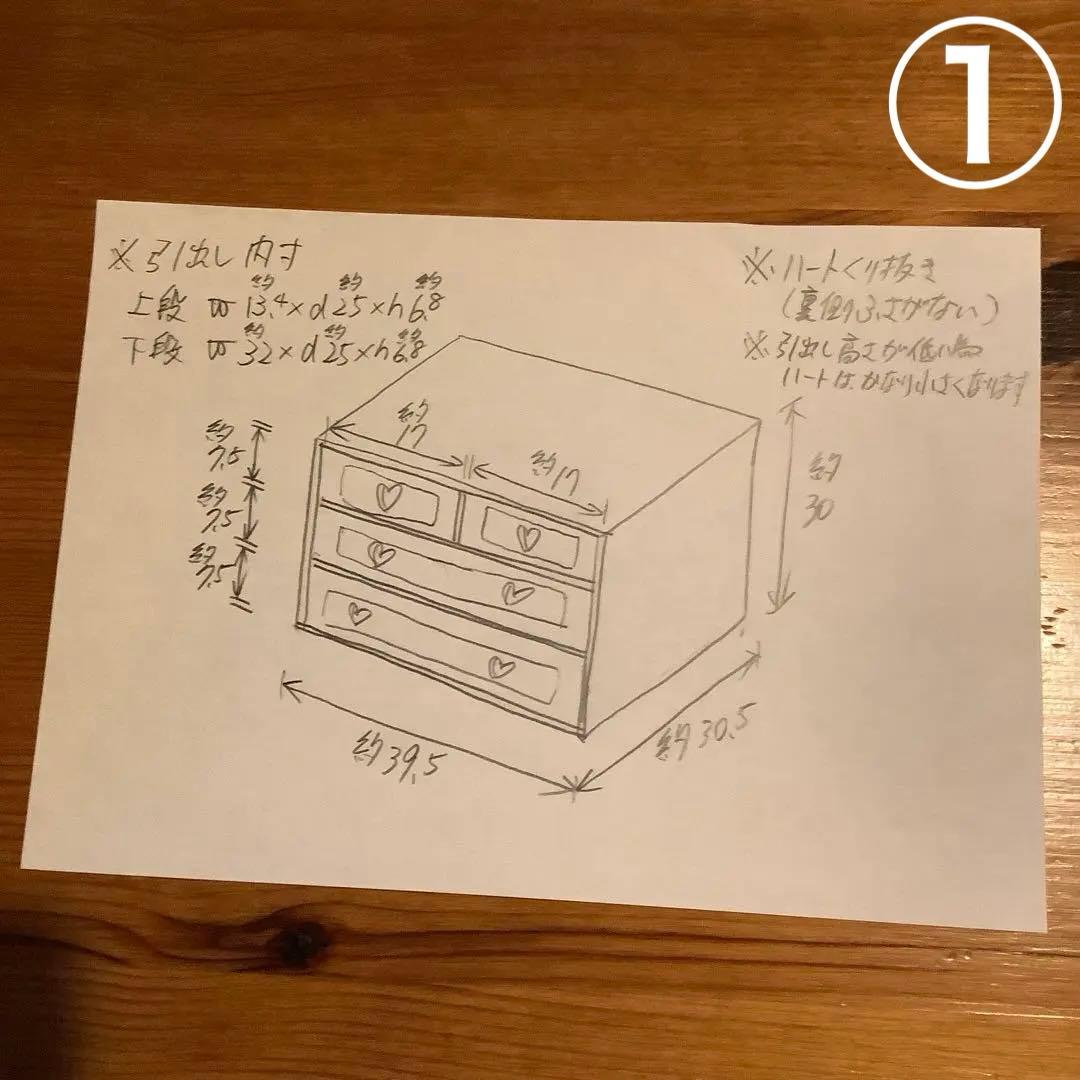 ①
※引出し内寸
上段 w約13.4×d約25×h約6.8
下段 w約32×d約25×h約6.8
※ハートくり抜き
(裏側ふさがない)
※引出し高さが低い為
ハートは、かなり小さくなります
約17
約17
約7.5
約7.5
約7.5
約30
約39.5
約30.5